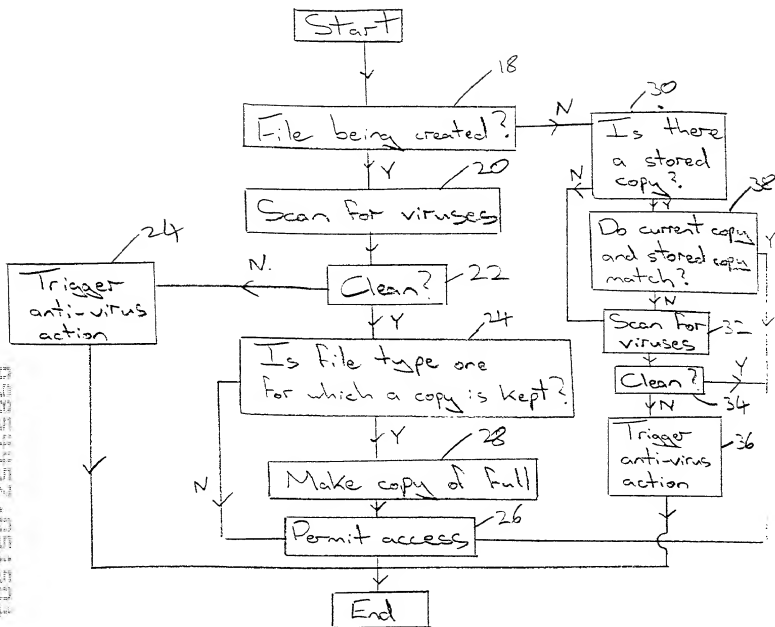 Start
18
File being created?
N
30
Is there
a stored
copy?
Y
20
N
Y
38
Scan for viruses
Do current copy
and stored copy
match?
Y
24
Trigger
anti-virus
action
N.
Clean?
22
N
Scan for
viruses
32
Y
24
Is file type one
for which a copy is kept?
Clean?
Y
34
N
Y
28
Trigger
anti-virus
action
36
N
Make copy of full
26
Permit access
End